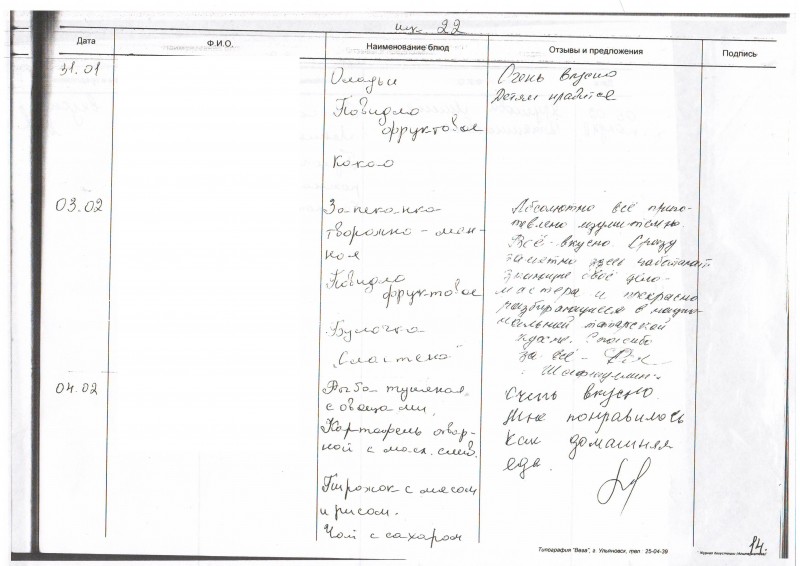 шк. 22
Дата Ф.И.О. Наименование блюд Отзывы и предложения Подпись
31.01
Оладьи
Повидло
фруктовое
Какао
Очень вкусно
Детям нравится
03.02
Запеканка
творожно-ман-
ная
Повидло
фруктовое
Булочка
„Сластёна"
Абсолютно всё приго-
товлено изумительно
Всё вкусно. Сразу
заметно здесь работают
знающие своё дело
мастера и прекрасно
разбирающиеся в нацио-
нальной татарской
кухне. Спасибо
за всё -
04.02
Рыба тушёная
с овощами.
Картофель отвар-
ной с масл. слив.
Пирожок с мясом
и рисом.
Чай с сахаром
Очень вкусно.
Мне понравилось
Как домашняя
еда.
Типография "Вега", г. Ульяновск, тел 25-04-39
14.